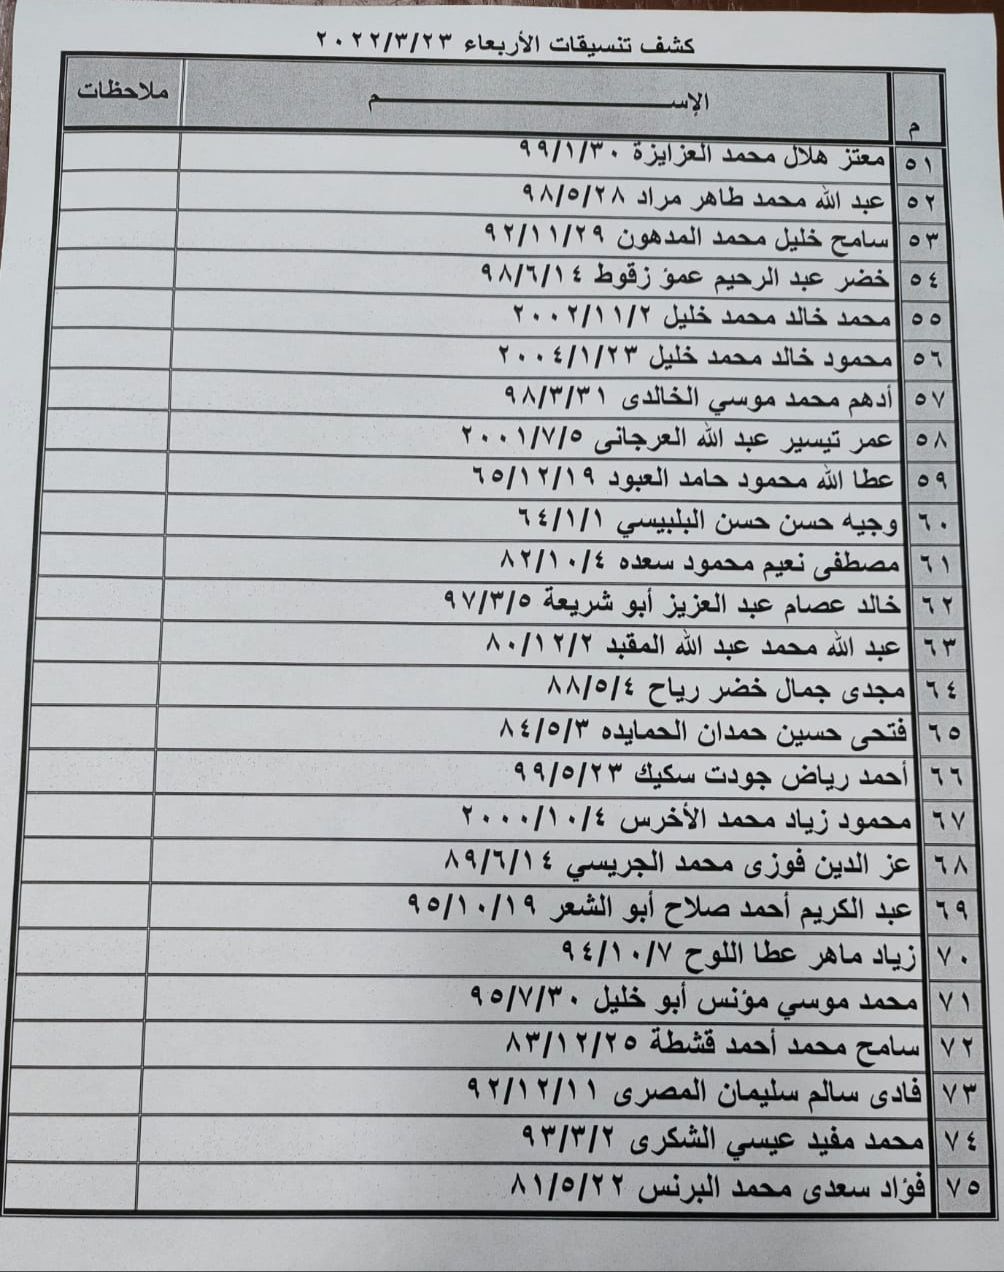 كشف تنسيقات الأربعاء ٢٠٢٢/٣/٢٣
م الإســـــم ملاحظات
٥١ معتز هلال محمد العزايزة ٩٩/١/٣٠
٥٢ عبد الله محمد طاهر مراد ٩٨/٥/٢٨
٥٣ سامح خليل محمد المدهون ٩٢/١١/٢٩
٥٤ خضر عبد الرحيم عمؤ زقوط ٩٨/٦/١٤
٥٥ محمد خالد محمد خليل ٢٠٠٢/١١/٢
٥٦ محمود خالد محمد خليل ٢٠٠٤/١/٢٣
٥٧ أدهم محمد موسي الخالدى ٩٨/٣/٣١
٥٨ عمر تيسير عبد الله العرجانى ٢٠٠١/٧/٥
٥٩ عطا الله محمود حامد العبود ٦٥/١٢/١٩
٦٠ وجيه حسن حسن البلبيسي ٦٤/١/١
٦١ مصطفى نعيم محمود سعده ٨٢/١٠/٤
٦٢ خالد عصام عبد العزيز أبو شريعة ٩٧/٣/٥
٦٣ عبد الله محمد عبد الله المقبد ٨٠/١٢/٢
٦٤ مجدى جمال خضر رياح ٨٨/٥/٤
٦٥ فتحى حسين حمدان الحمايده ٨٤/٥/٣
٦٦ أحمد رياض جودت سكيك ٩٩/٥/٢٣
٦٧ محمود زياد محمد الأخرس ٢٠٠٠/١٠/٤
٦٨ عز الدين فوزى محمد الجريسي ٨٩/٦/١٤
٦٩ عبد الكريم أحمد صلاح أبو الشعر ٩٥/١٠/١٩
٧٠ زياد ماهر عطا اللوح ٩٤/١٠/٧
٧١ محمد موسي مؤنس أبو خليل ٩٥/٧/٣٠
٧٢ سامح محمد أحمد قشطة ٨٣/١٢/٢٥
٧٣ فادى سالم سليمان المصرى ٩٢/١٢/١١
٧٤ محمد مفيد عيسي الشكرى ٩٣/٣/٢
٧٥ فؤاد سعدى محمد البرنس ٨١/٥/٢٢